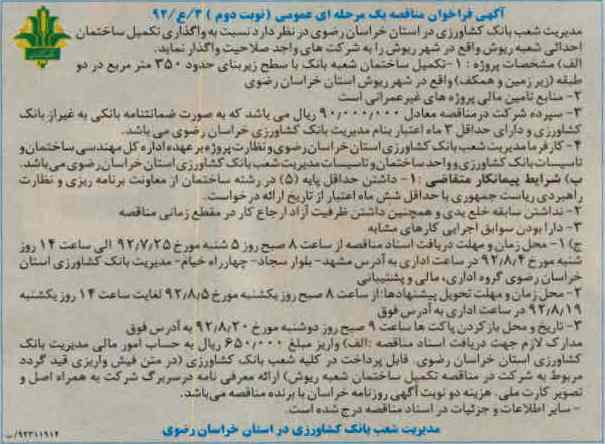 آگهی فراخوان مناقصه یک مرحله ای عمومی (نوبت دوم) ۹۲/ع/۳
مدیریت شعب بانک کشاورزی در استان خراسان رضوی در نظر دارد نسبت به واگذاری تکمیل ساختمان
احداثی شعبه ریوش واقع در شهر ریوش را به شرکت های واجد صلاحیت واگذار نماید.
الف) مشخصات پروژه : ۱-تکمیل ساختمان شعبه بانک با سطح زیربنای حدود ۳۵۰ متر مربع در دو
طبقه (زیر زمین و همکف) واقع در شهر ریوش استان خراسان رضوی
۲- منابع تامین مالی پروژه های غیرعمرانی است
۳- سپرده شرکت در مناقصه معادل ۹۰/۰۰۰/۰۰۰ ریال می باشد که به صورت ضمانتنامه بانکی به غیر از بانک
کشاورزی و دارای حداقل ۳ ماه اعتبار بنام مدیریت بانک کشاورزی خراسان رضوی می باشد.
۴- کارفرما مدیریت شعب بانک کشاورزی استان خراسان رضوی و نظارت پروژه بر عهده اداره کل مهندسی ساختمان و
تاسیسات بانک کشاورزی و واحد ساختمان و تاسیسات مدیریت شعب بانک کشاورزی استان خراسان رضوی می باشد.
ب) شرایط پیمانکار متقاضی : ۱- داشتن حداقل پایه (۵) در رشته ساختمان از معاونت برنامه ریزی و نظارت
راهبردی ریاست جمهوری با حداقل شش ماه اعتبار از تاریخ ارائه درخواست.
۲- نداشتن سابقه خلع یدی و همچنین داشتن ظرفیت آزاد ارجاع کار در مقطع زمانی مناقصه
۳- دارا بودن سوابق اجرایی کارهای مشابه
ج) ۱- محل زمان و مهلت دریافت اسناد مناقصه از ساعت ۸ صبح روز ۵ شنبه مورخ ۹۲/۷/۲۵ الی ساعت ۱۴ روز
شنبه مورخ ۹۲/۸/۴ در ساعت اداری به آدرس مشهد- بلوار سجاد- چهارراه خیام- مدیریت بانک کشاورزی استان
خراسان رضوی گروه اداری، مالی و پشتیبانی
۲- محل و زمان و مهلت تحویل پیشنهادها: از ساعت ۸ صبح روز یکشنبه مورخ ۹۲/۸/۵ لغایت ساعت ۱۴ روز یکشنبه
۹۲/۸/۱۹ در ساعت اداری به آدرس فوق
۳- تاریخ و محل باز کردن پاکت ها ساعت ۹ صبح روز دوشنبه مورخ ۹۲/۸/۲۰ به آدرس فوق
مدارک لازم جهت دریافت اسناد مناقصه :الف) واریز مبلغ ۶۵۰/۰۰۰ ریال به حساب امور مالی مدیریت بانک
کشاورزی استان خراسان رضوی. قابل پرداخت در کلیه شعب بانک کشاورزی (در متن فیش واریزی قید گردد
مربوط به شرکت در مناقصه تکمیل ساختمان شعبه ریوش) ارائه معرفی نامه در سربرگ شرکت به همراه اصل و
تصویر کارت ملی. هزینه دو نوبت آگهی روزنامه خراسان با برنده مناقصه می باشد.
- سایر اطلاعات و جزئیات در اسناد مناقصه درج شده است.
مدیریت شعب بانک کشاورزی در استان خراسان رضوی
۹۲۳۱۱۹۱۴/ب